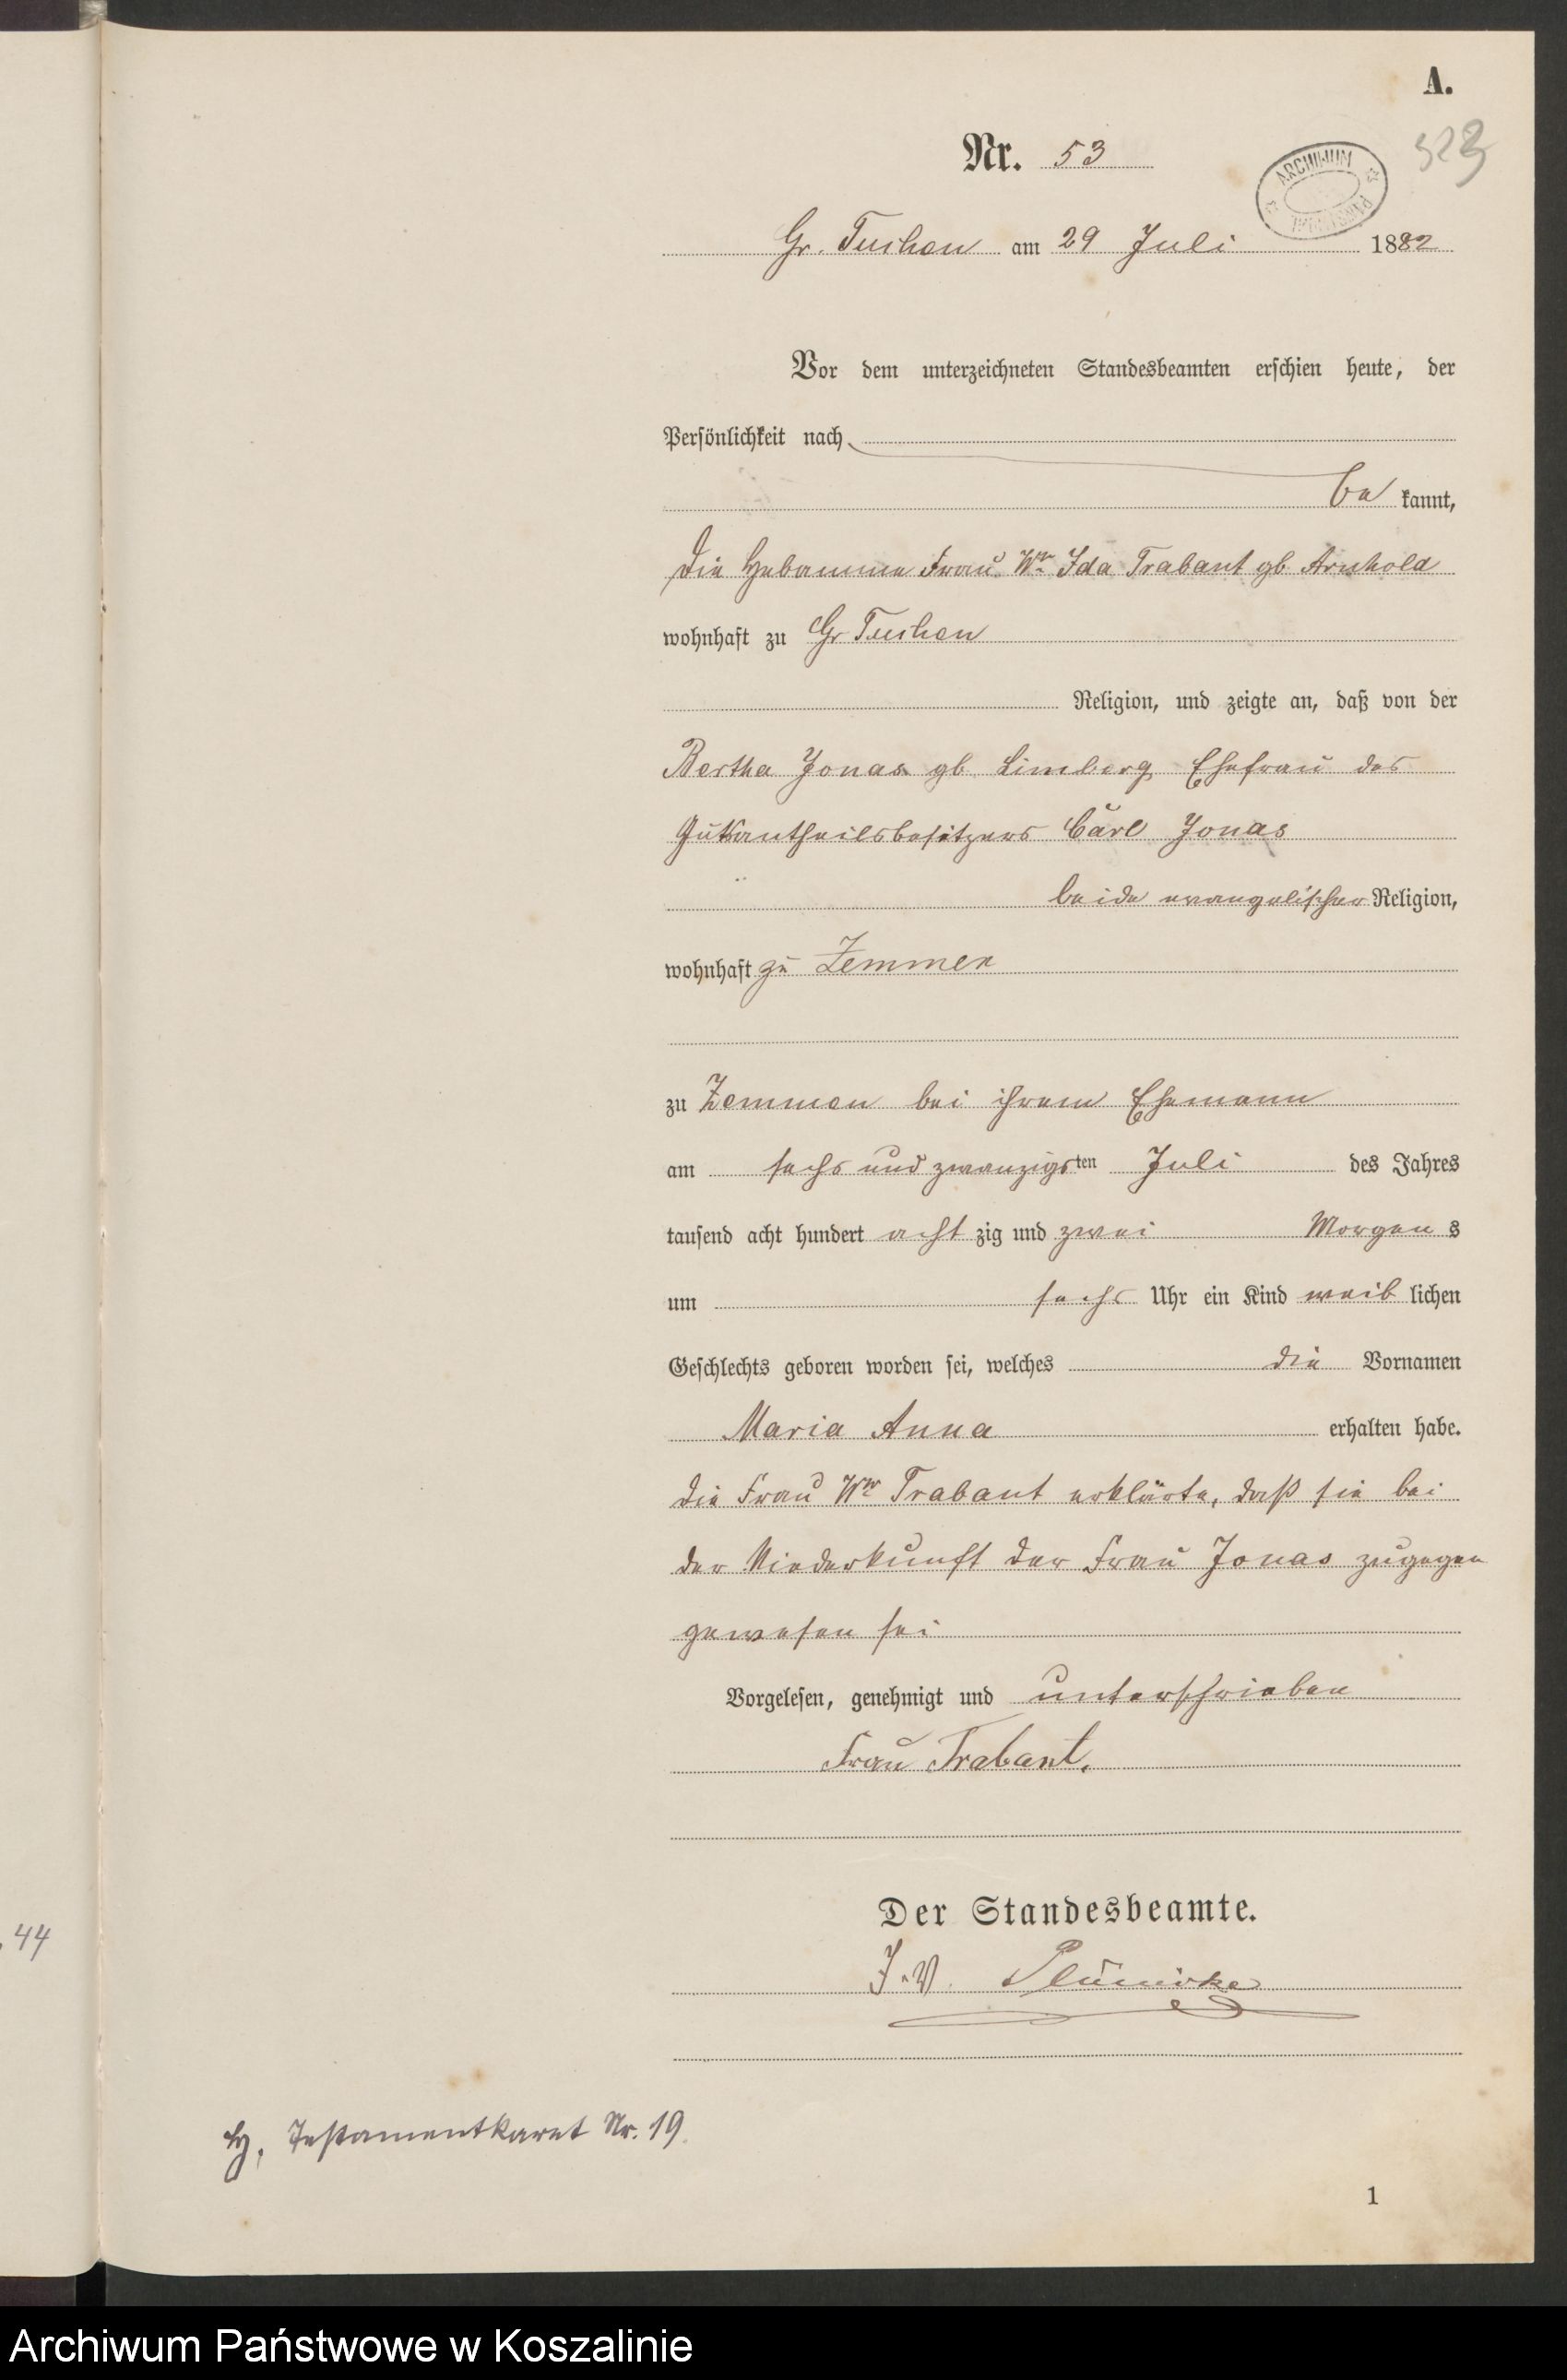 A.
Nr. 53
323
ARCHIWUM
Gr. Tuchen am 29 Juli 1882
Vor dem unterzeichneten Standesbeamten erschien heute, der
Persönlichkeit nach
be kannt,
die Hebamme Frau Ww Ida Trabant gb Arnhold
wohnhaft zu Gr Tuchen
Religion, und zeigte an, daß von der
Bertha Jonas gb Limberg Ehefrau des
Gutsantheilsbesitzers Carl Jonas
beide evangelischer Religion,
wohnhaft zu Zemmen
zu Zemmen bei ihrem Ehemann
am sechs und zwanzigsten Juli des Jahres
tausend acht hundert acht zig und zwei Morgen s
um sechs Uhr ein Kind weib lichen
Geschlechts geboren worden sei, welches die Vornamen
Maria Anna erhalten habe.
die Frau Ww Trabant erklärte, daß sie bei
der Niederkunft der Frau Jonas zugegen
gewesen sei
Vorgelesen, genehmigt und unterschrieben
Frau Trabant.
Der Standesbeamte.
J. V. Plümicke
44
Testamentkaret Nr. 19.
1
Archiwum Państwowe w Koszalinie